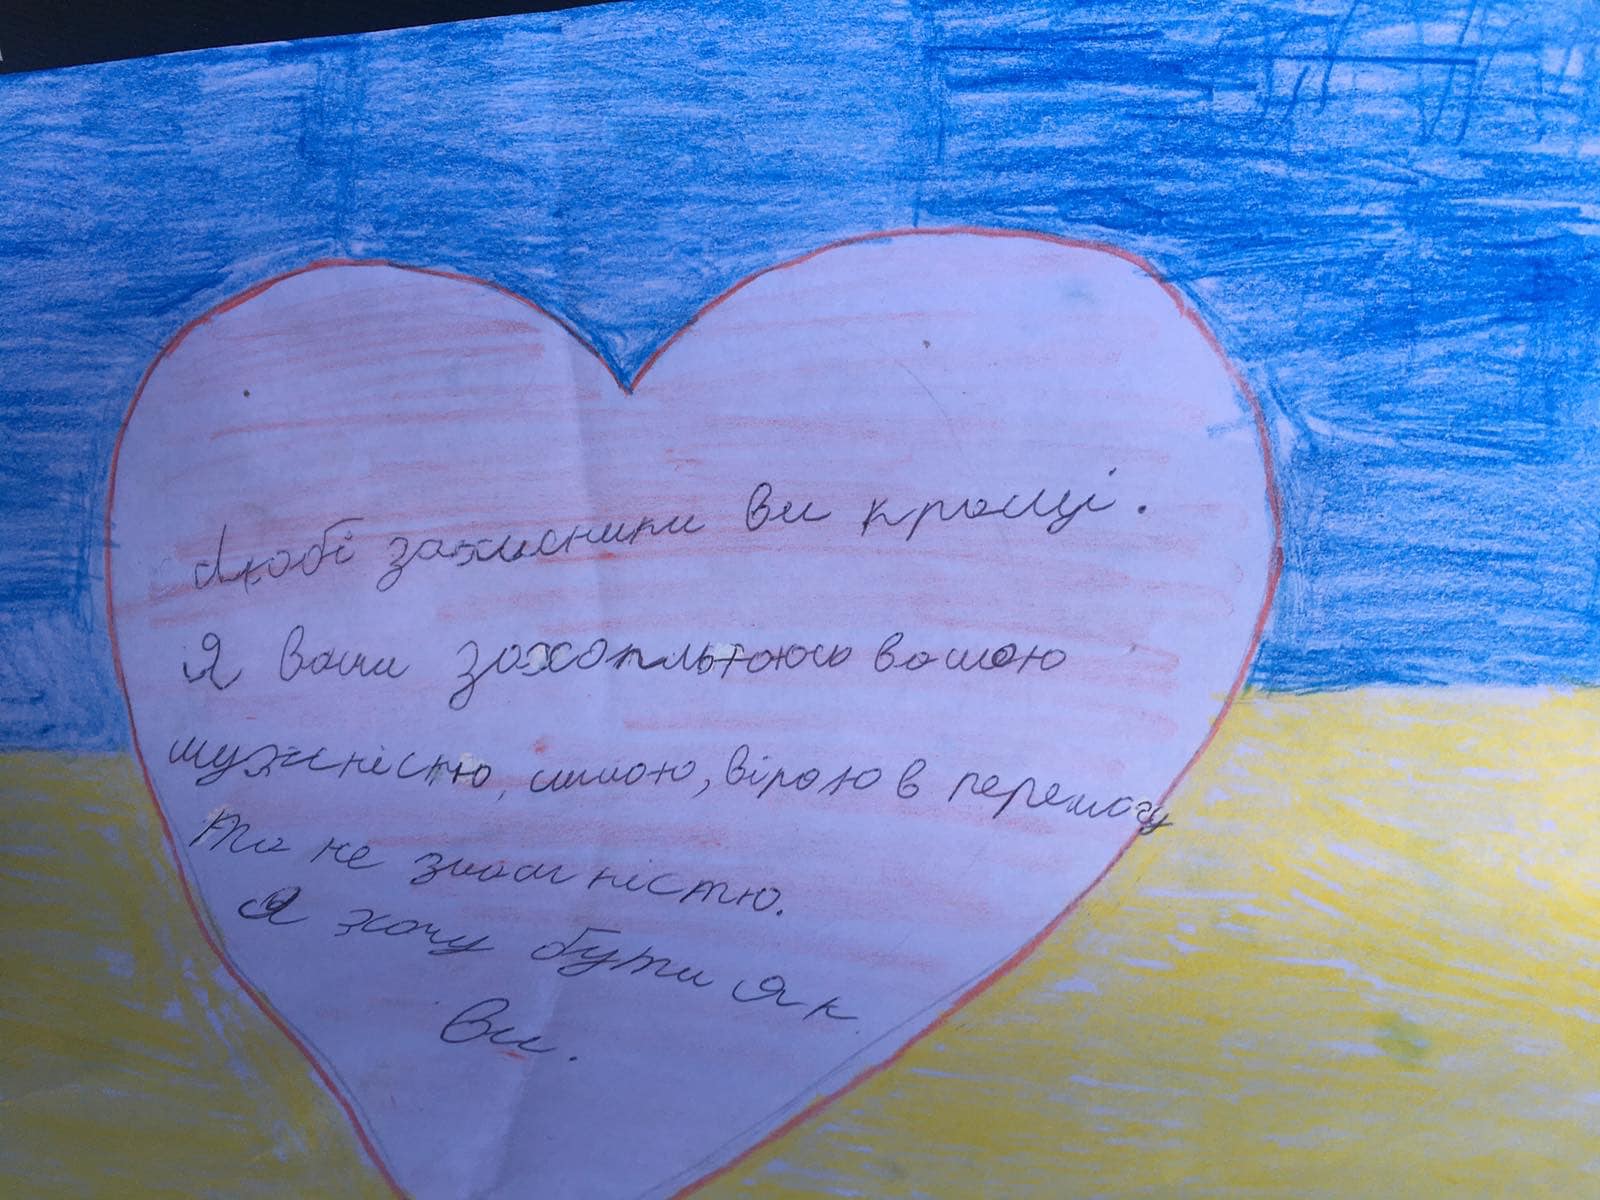 Любі захисники ви кращі.
Я вами захопльтююсь вашою
мужністю, силою, вірою в перемогу
та не зламністю.
Я хочу бути як
Ви.